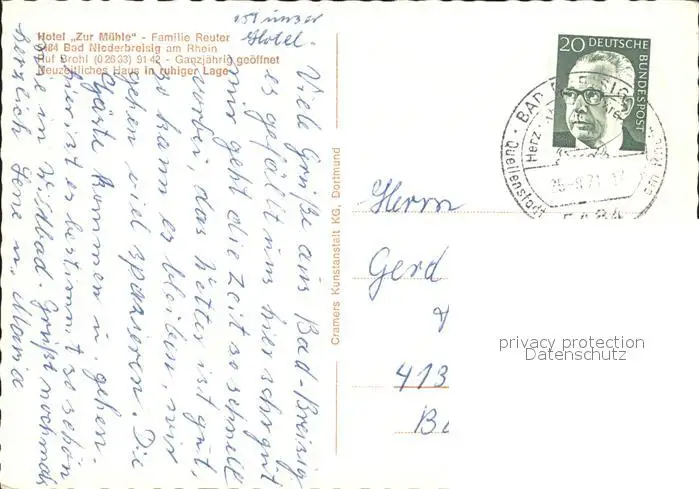 Hotel „Zur Mühle" - Familie Reuter
5484 Bad Niederbreisig am Rhein
Ruf Brohl (0 26 33) 91 42 - Ganzjährig geöffnet
Neuzeitliches Haus in ruhiger Lage
ist unser
Hotel.
Viele Grüße aus Bad-Breisig,
es gefällt uns hier sehr gut
mir geht die Zeit so schnell
vorbei, das Wetter ist gut,
so kann es bleiben, wir
gehen viel spazieren. Die
Gäste kommen u. gehen.
hier ist es bestimmt so schön
wie in Wildbad. Grüßt nochmals
herzlich Gene u. Maria
Cramers Kunstanstalt KG, Dortmund
20 DEUTSCHE
BUNDESPOST
BAD
Quellenstadt
Herz
Herrn
Gerd
413
privacy protection
Datenschutz